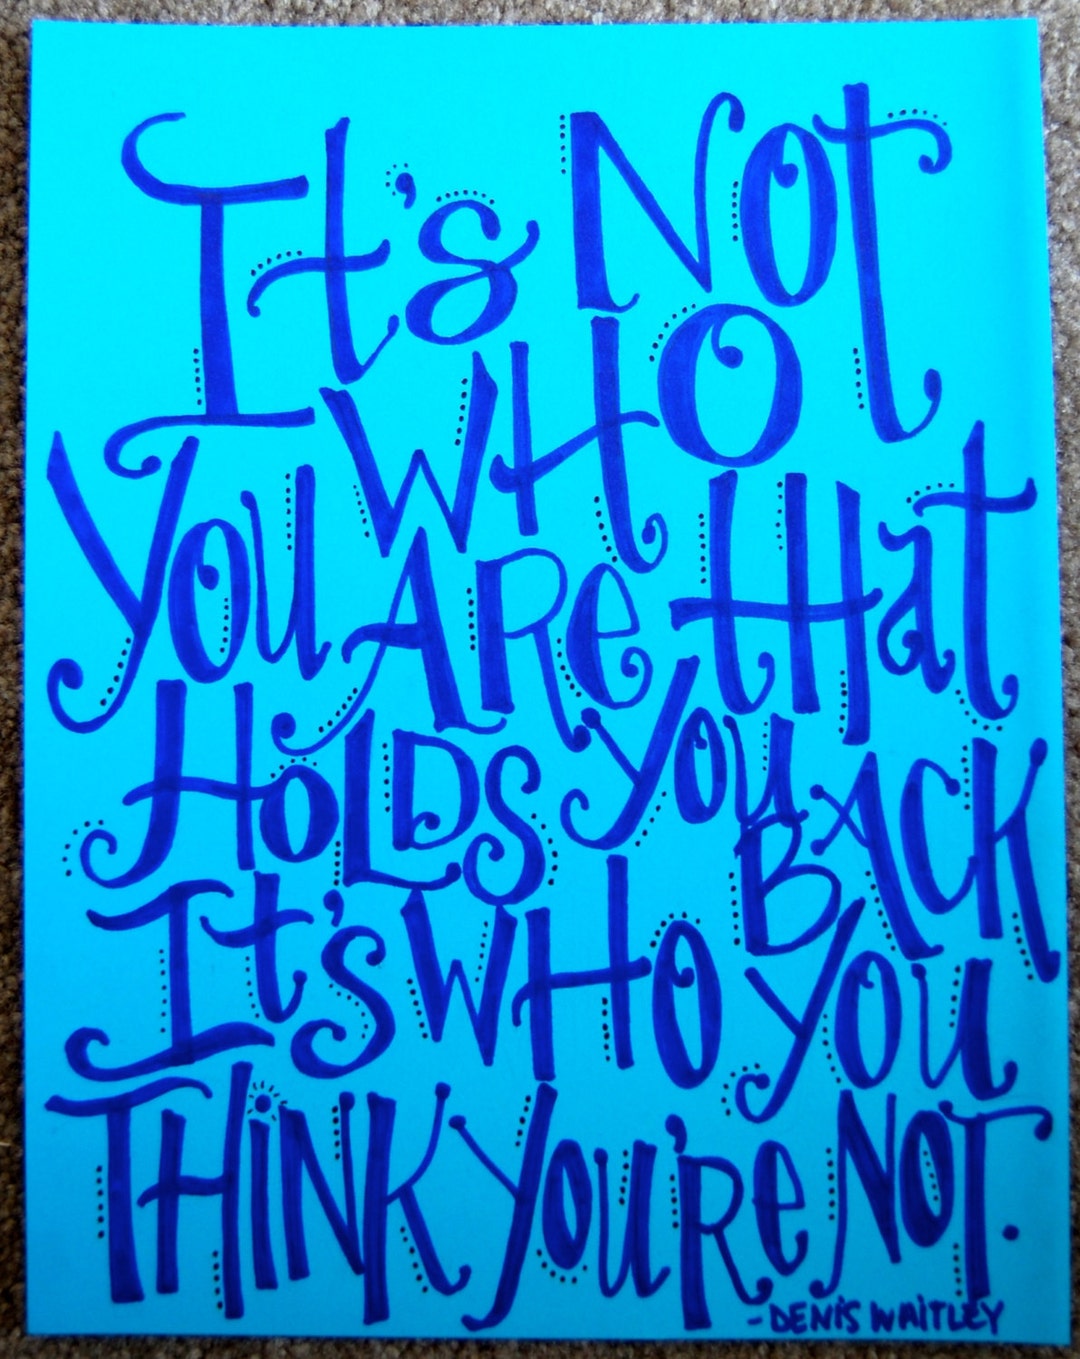 It's NOT
WHO
YOU ARe tHat
HOLDS YOU BACK
It'S WHO YOU
THiNK YOU'Re NOT.
-DENiS WAiTLEY